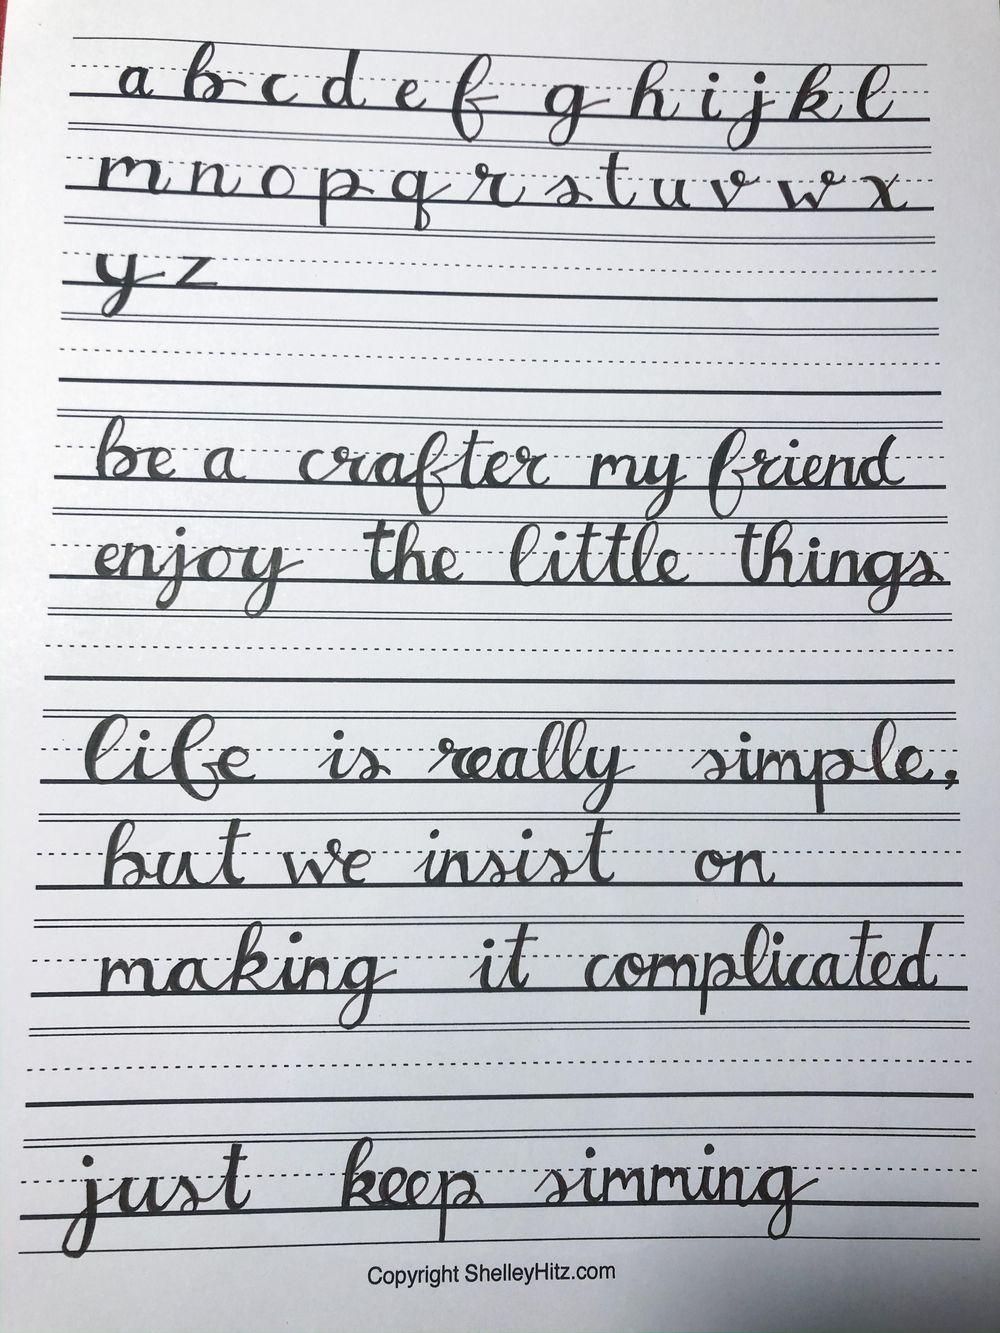 a b c d e f g h i j k l
m n o p q r s t u v w x
y z
be a crafter my friend
enjoy the little things
life is really simple,
but we insist on
making it complicated
just keep simming
Copyright ShelleyHitz.com